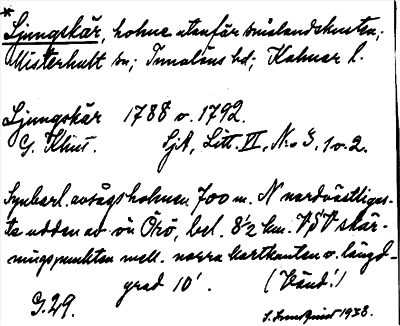 *
Ljungskär, holme utanför smålandskusten;
Misterhult sn; Tunaläns hd; Kalmar l.
Ljungskär 1788 o. 1792.
G. Klint. SjA, Litt. VI, N:o 3, 1 o. 2.
Synbarl. avsågs holmen 700 m. N nordvästligas-
te udden av ön Örö, bel. 8½ km. VSV skär-
ningspunkten mell. norra kartkanten o. längd-
grad 10'. (Vänd!)
G. 29. 1938.